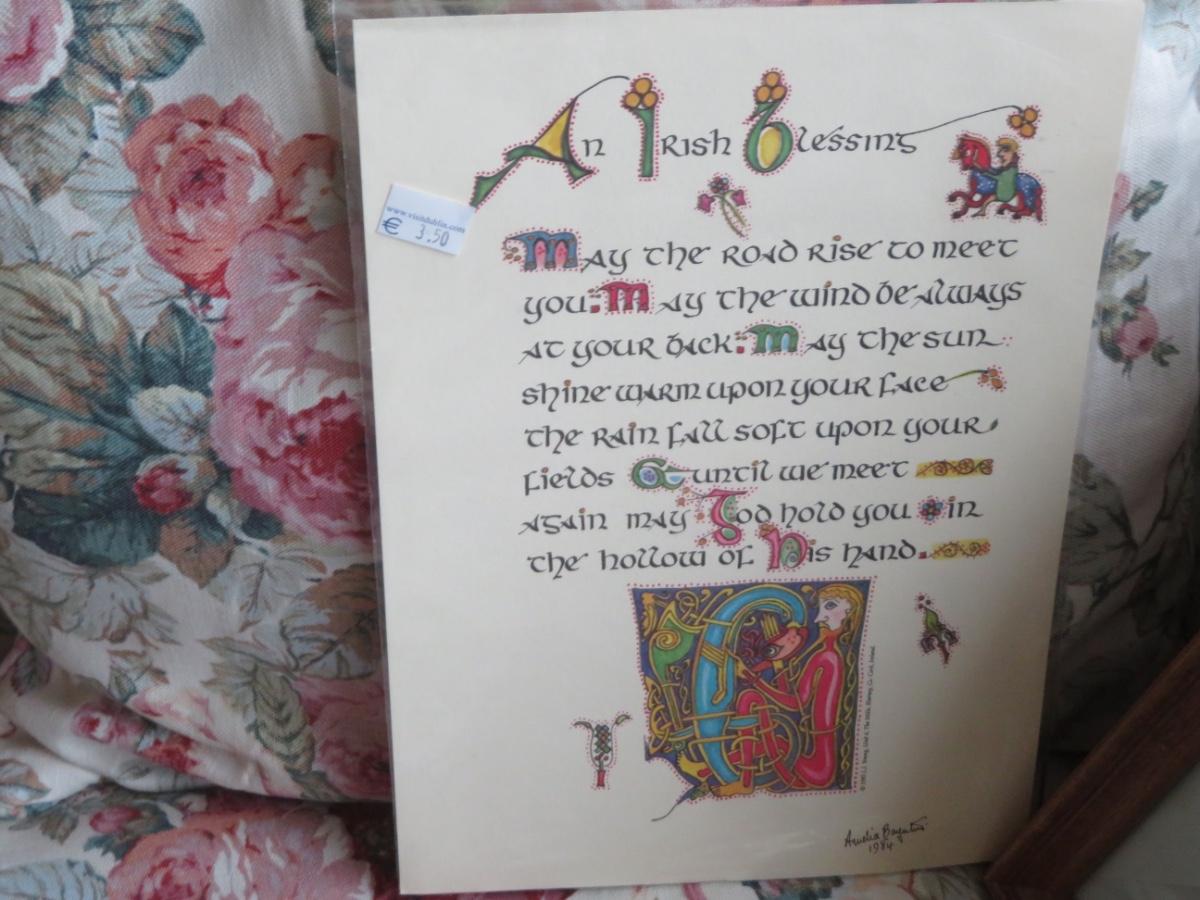 An Irish Blessing
www.visitdublin.com
€ 3.50
May the road rise to meet
you: May the wind be always
at your back: May the sun
shine warm upon your face
the rain fall soft upon your
fields & until we meet
again may God hold you in
the hollow of His hand.
1984